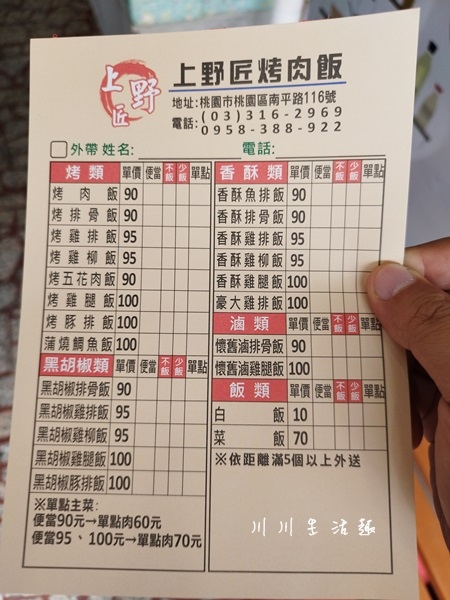 上野匠
上野匠烤肉飯
地址:桃園市桃園區南平路116號
電話:(03)316-2969
0958-388-922
外帶 姓名: 電話:
烤類 單價 便當 不飯 少飯 單點
烤肉飯 90
烤排骨飯 90
烤雞排飯 95
烤雞柳飯 95
烤五花肉飯 90
烤雞腿飯 100
烤豚排飯 100
蒲燒鯛魚飯 100
黑胡椒類 單價 便當 不飯 少飯 單點
黑胡椒排骨飯 90
黑胡椒雞排飯 95
黑胡椒雞柳飯 95
黑胡椒雞腿飯 100
黑胡椒豚排飯 100
※單點主菜:
便當90元→單點肉60元
便當95、100元→單點肉70元
香酥類 單價 便當 不飯 少飯 單點
香酥魚排飯 90
香酥排骨飯 90
香酥雞排飯 95
香酥雞柳飯 95
香酥雞腿飯 100
豪大雞排飯 100
滷類 單價 便當 不飯 少飯 單點
懷舊滷排骨飯 90
懷舊滷雞腿飯 100
飯類 單價 便當 不飯 少飯 單點
白飯 10
菜飯 70
※依距離滿5個以上外送
川川生活趣